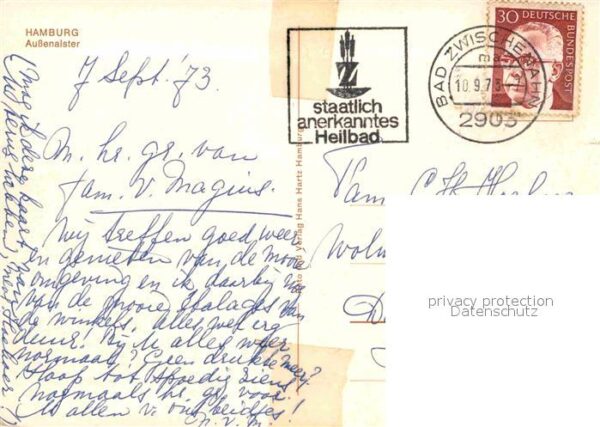 HAMBURG
Außenalster
7 Sept. '73.
M. hr. gr. van
fam. v. Magius.
Wij treffen goed weer
en genieten van de mooie
omgeving en ik daarbij nog
van de mooie etalages van
de winkels. Alles wel erg
duur! Bij U alles weer
normaal? Geen drukte meer?
Hoop tot spoedig ziens
nogmaals hr. gr. voor
U allen v. ons beidjes!
(Mag ik deze kaart van
U terug hebben, mevr.
Foto und Verlag Hans Hartz Hamburg
Z
staatlich
anerkanntes
Heilbad
BAD ZWISCHENAHN
10.9.73
2903
30 DEUTSCHE
BUNDESPOST
Fam.
privacy protection
Datenschutz